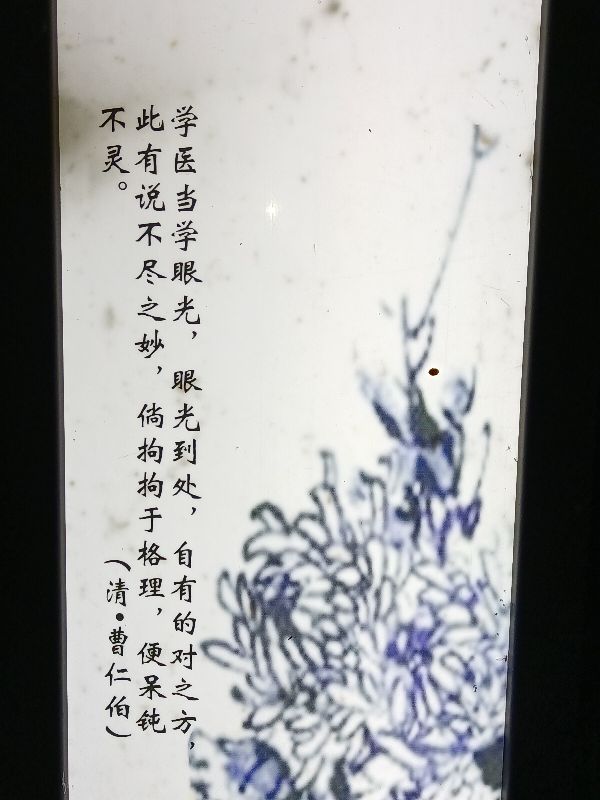 学医当学眼光，眼光到处，自有的对之方，
此有说不尽之妙，倘拘拘于格理，便呆钝
不灵。
（清•曹仁伯）